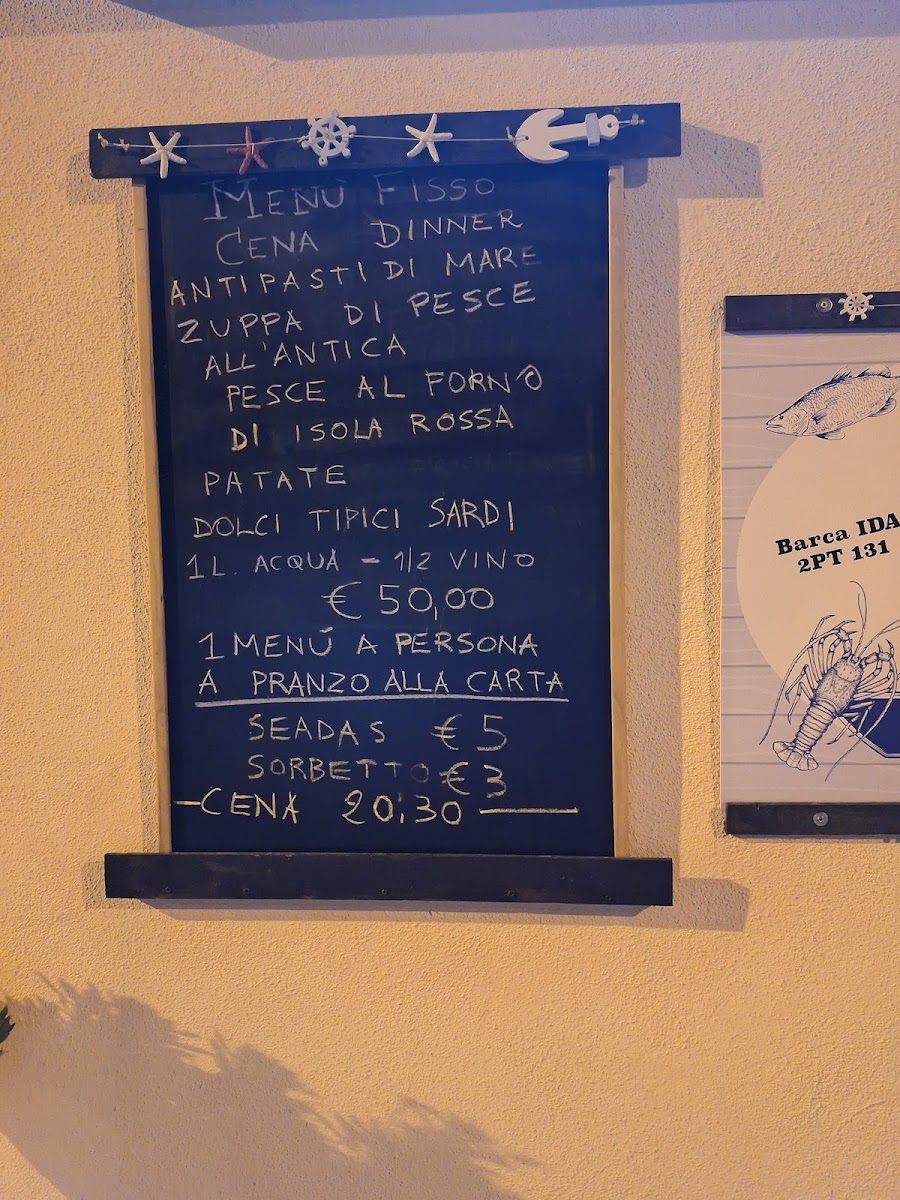 MENÙ FISSO
CENA DINNER
ANTIPASTI DI MARE
ZUPPA DI PESCE
ALL'ANTICA
PESCE AL FORNO
DI ISOLA ROSSA
PATATE
DOLCI TIPICI SARDI
1 L. ACQUA - 1/2 VINO
€ 50,00
1 MENÚ A PERSONA
A PRANZO ALLA CARTA
SEADAS € 5
SORBETTO € 3
-CENA 20:30
Barca IDA
2PT 131